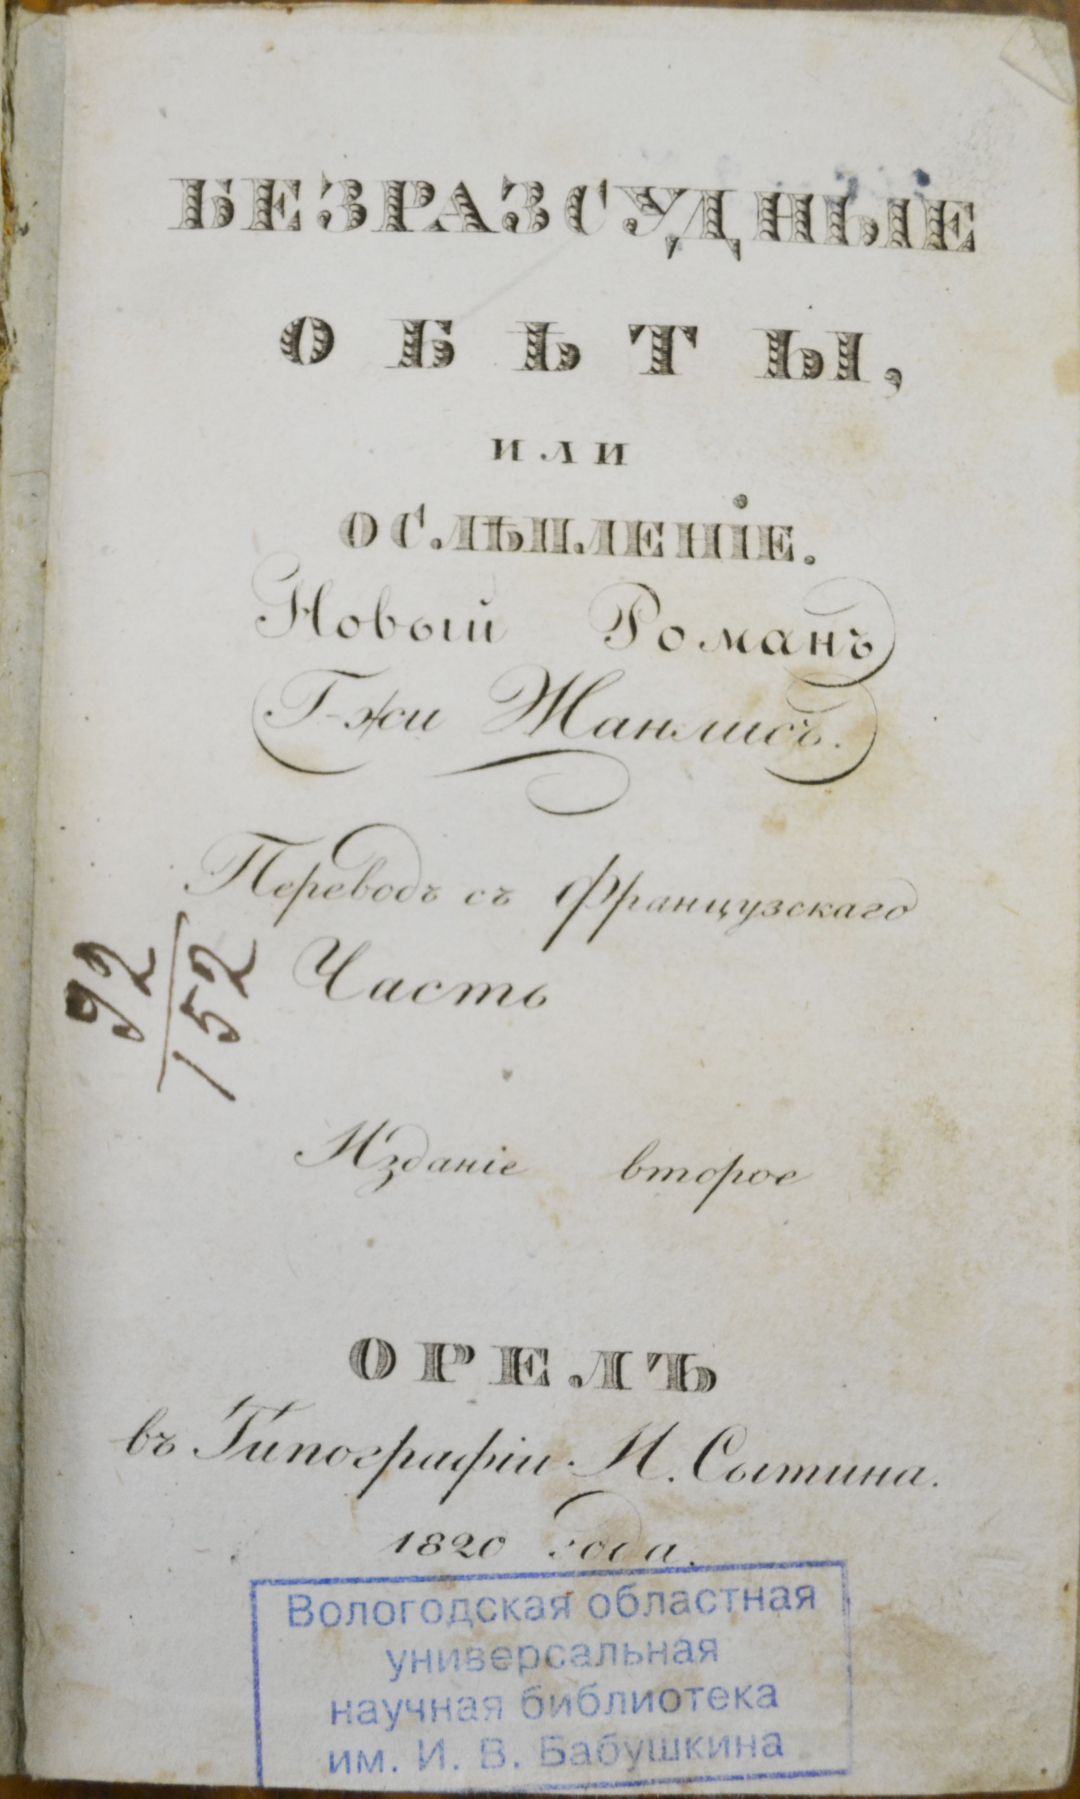 БЕЗРАЗСУДНЫЕ
ОБѢТЫ,
ИЛИ
ОСЛѢПЛЕНІЕ.
Новый Романъ
Г-жи Жанлисъ.
Переводъ съ французскаго
Часть
92
152
Изданіе второе
ОРЕЛЪ
въ Типографіи И. Сытина.
1820 года.
Вологодская областная
универсальная
научная библиотека
им. И. В. Бабушкина